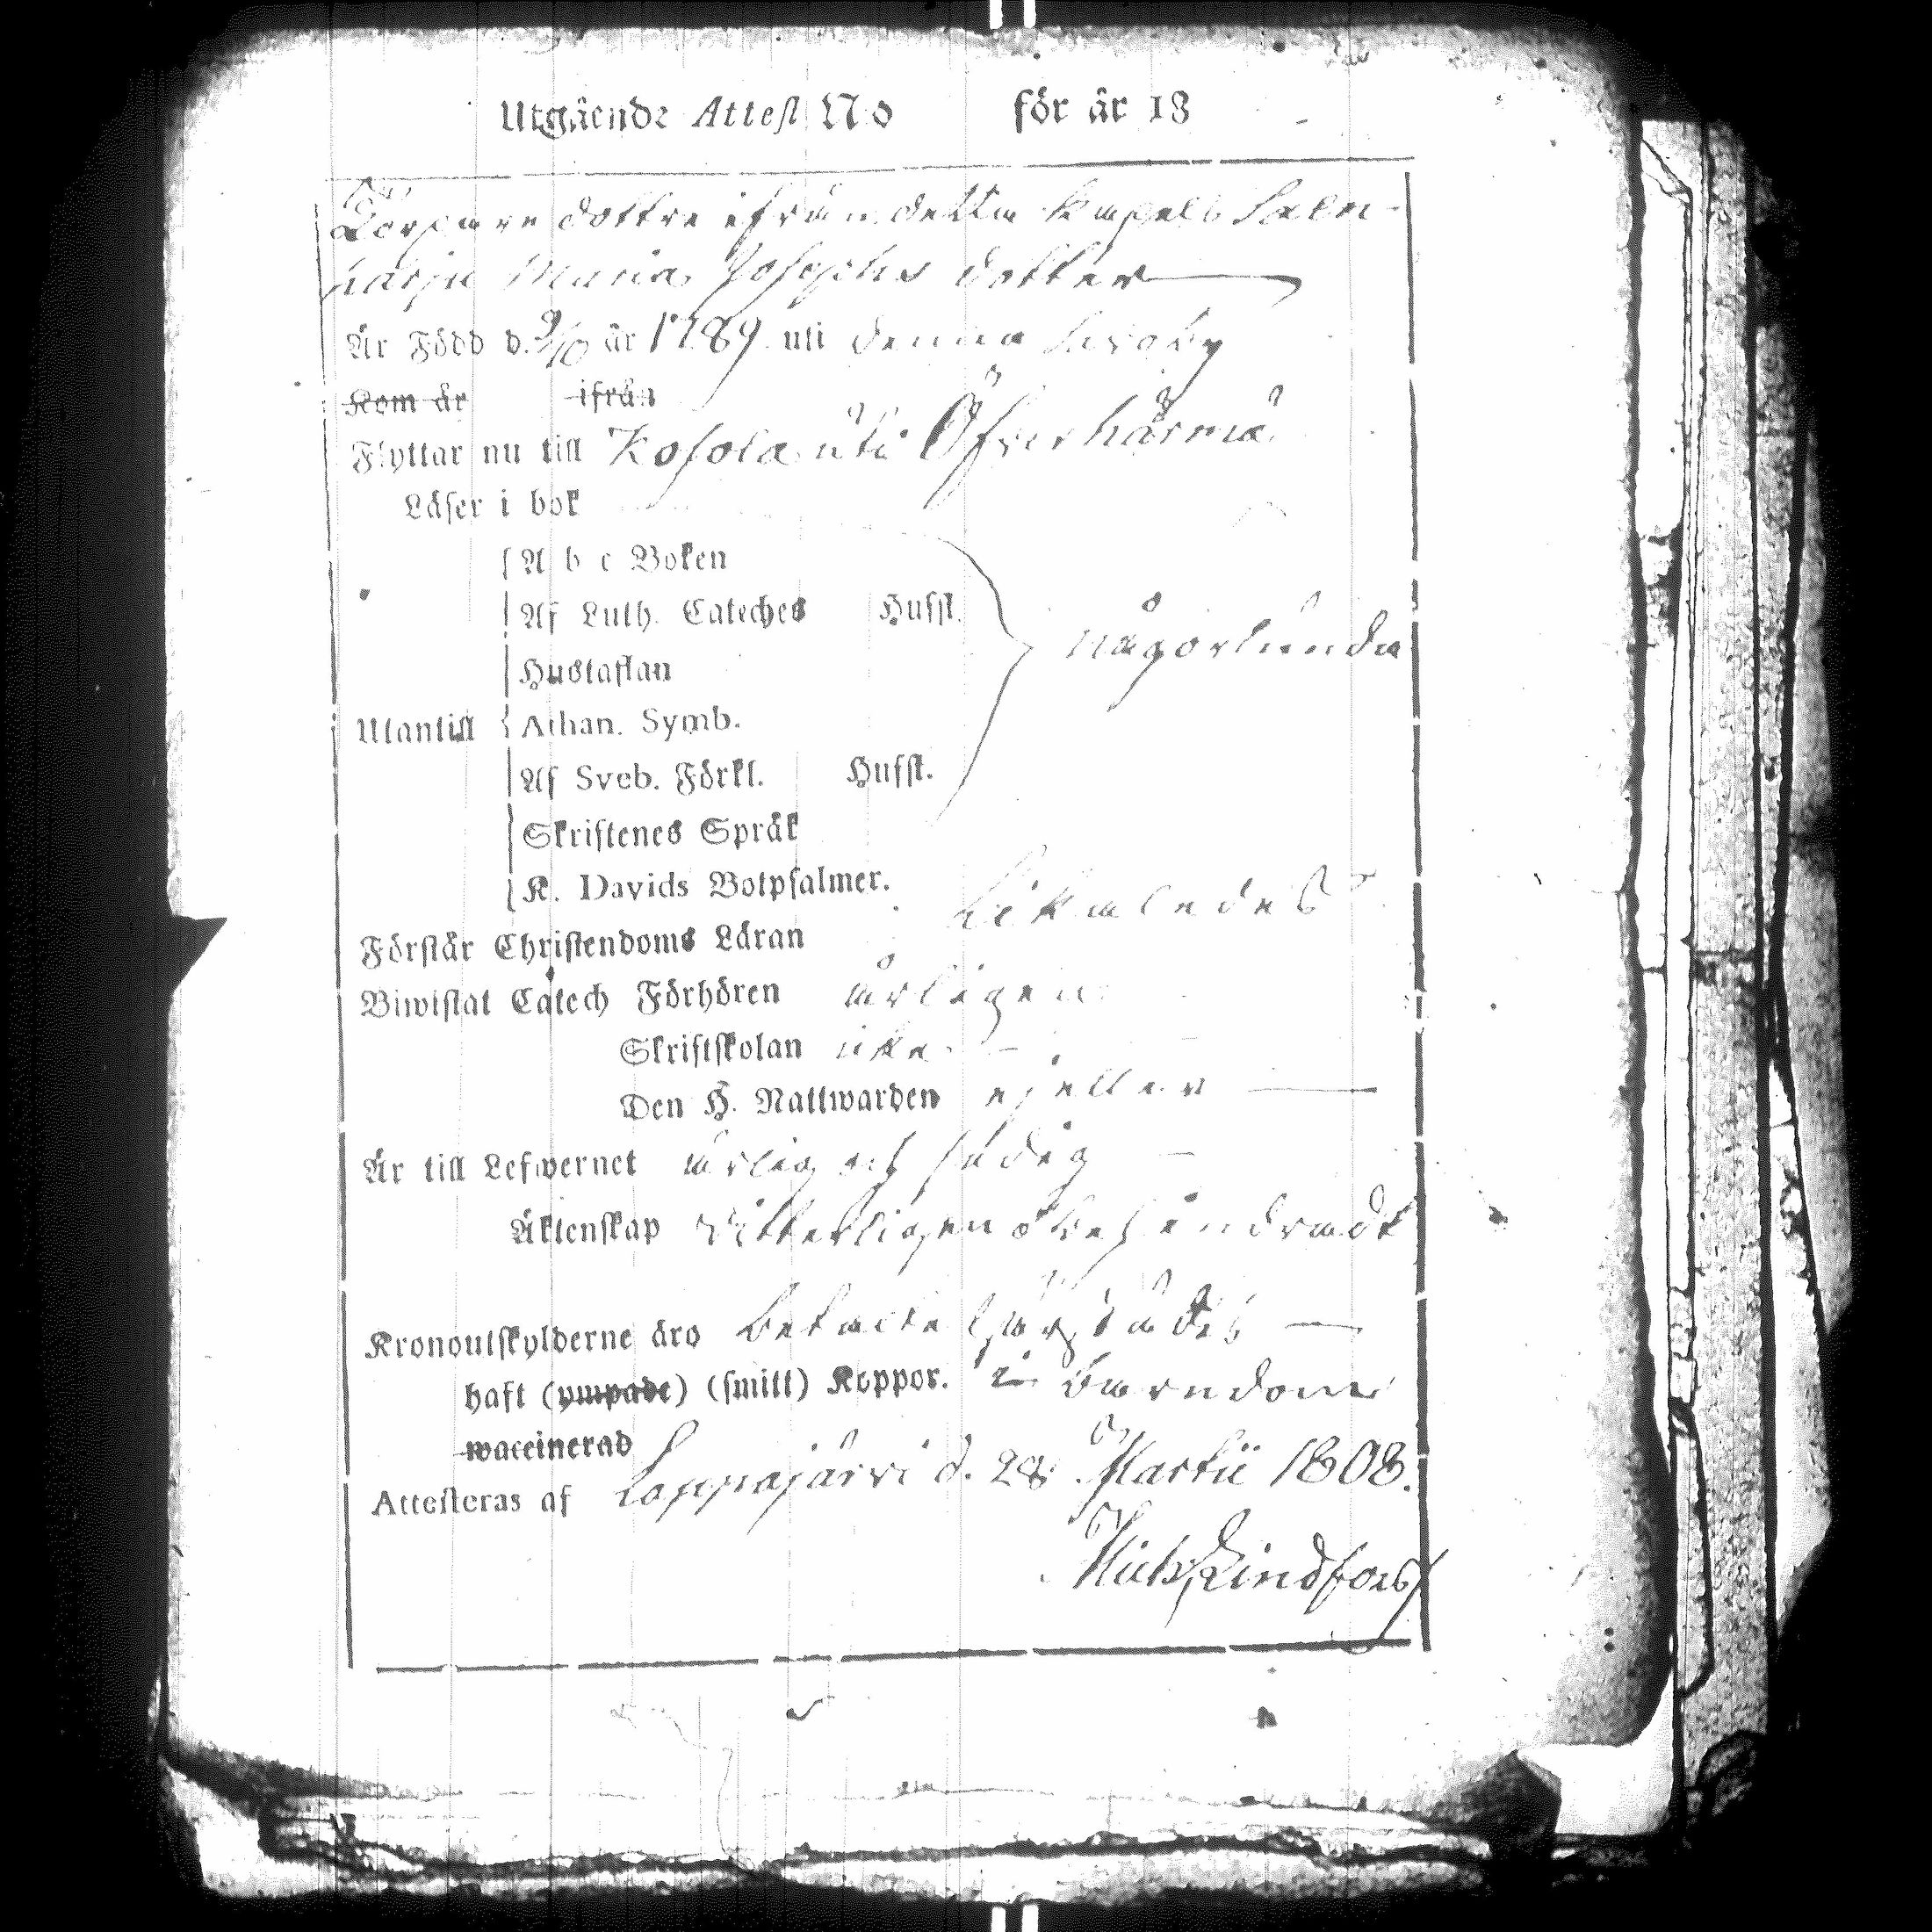 Utgäende Attest No för är 18
Torpare dottre ifrån detta kapell Salen-
harju Maria Josephs dotter
Är Född d. 9/10 är 1789 uti denna
Kom är ifrån
Flyttar nu till Kosola uti Öfverhärmä
Läser i bok
A b c Boken
Af Luth. Cateches Hufst.
någorlunda
Hustaflan
Utantill Athan. Symb.
Af Sveb. Förkl. Hufst.
Skriftenes Spräk
K. Davids Botpsalmer.
Likaledes
Förstär Christendoms Läran
Biwistat Catech Förhören årligen
Skriftskolan icke
Den H. Nattwarden ejeller
Är till Lefwernet ärlig och sedig
Äktenskap vitterligen obehindradt
Kronoutskylderne äro betalte
haft (ympade) (smitt) Koppor. i barndomen
waccinerad
Attesteras af Lappajärvi d. 28 Martii 1808.
Mich. Lindfors